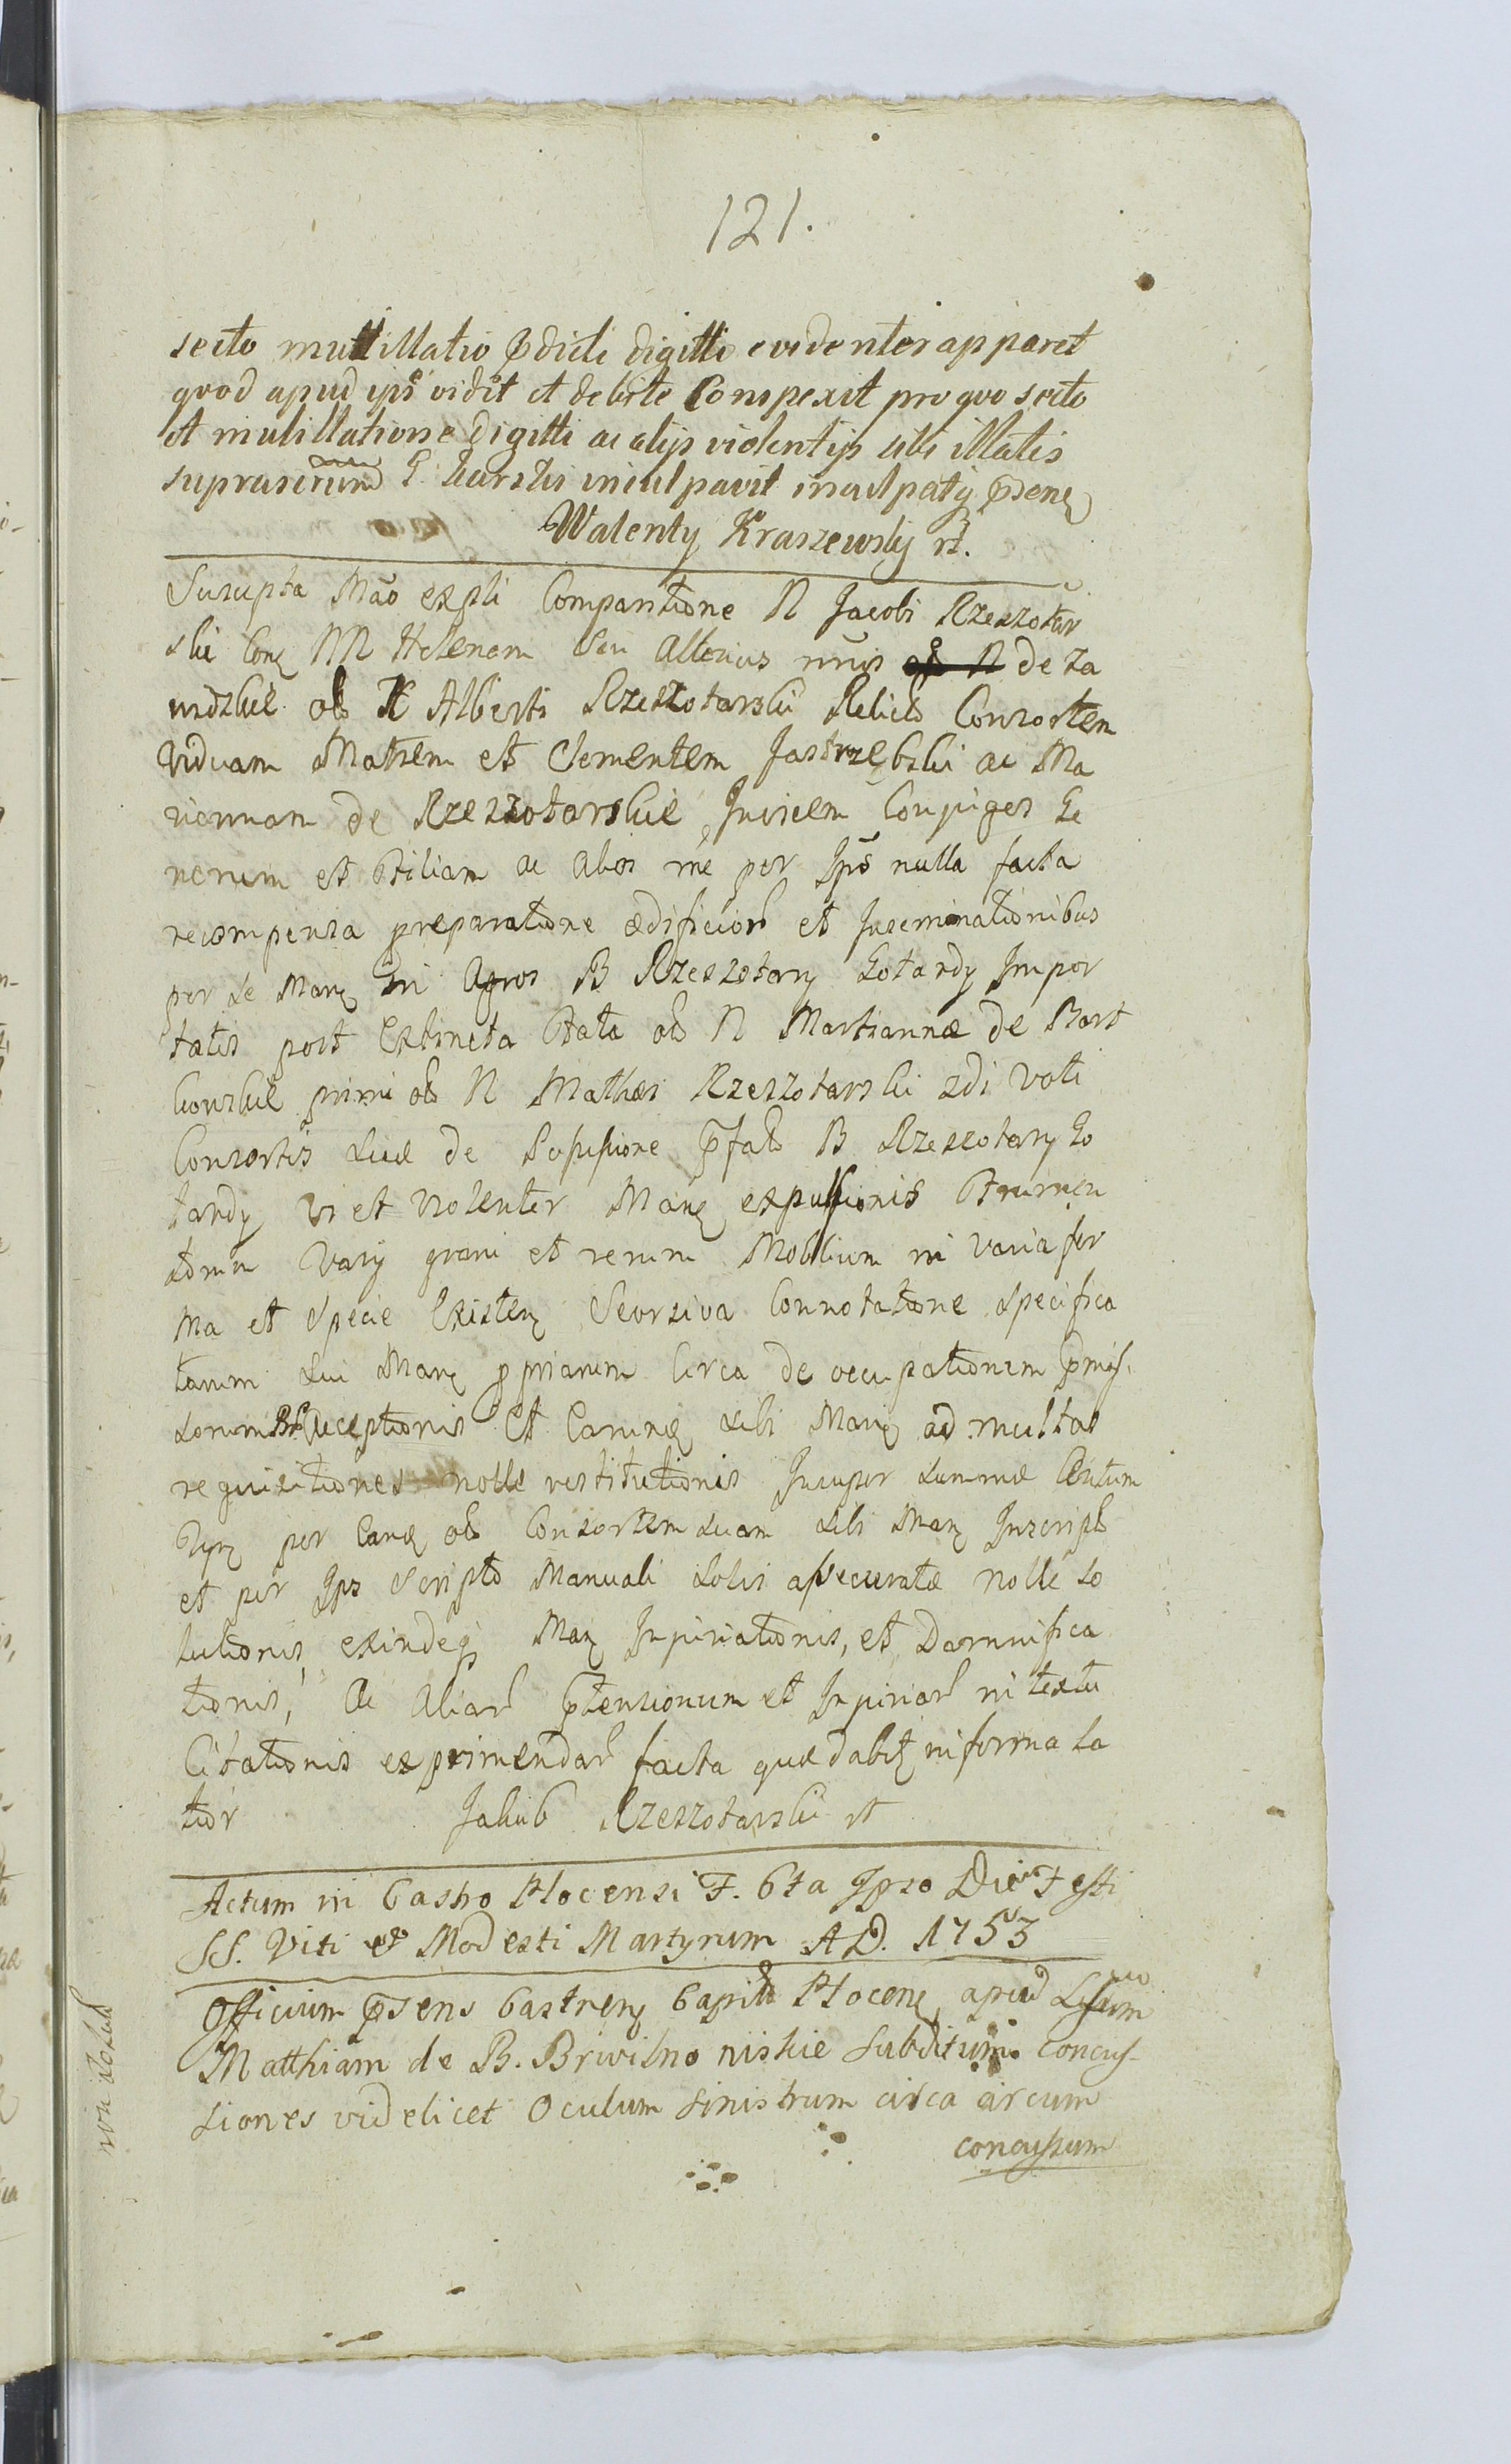 121.
secto mutillatio pdicti digitti evidenter apparet
quod apud ips vidit et debite Conspexit pro quo secto
et mutillatione digitti ac alijs violentijs sibi illatis
suprascriptum G. Karski inculpavit inculpatq psenq
Walenty Kraszewsky rt.
Suscepta Mão expli Comparitione N Jacobi Rzeszotar
ski Conq NN Helenam Seu alterius nnis de Za
widzkie ol N Alberti Rzeszotarski Relicto Consortem
Viduam Matrem et Clementem Jastrzębski ac Ma
riannam de Rzeszotarskie Invicem Conjuges Ge
nerum et Filiam ac alios rne per Ips nulla facta
recompensa preparatione ædificior et Inseminationibus
per se Manq in Agros B Rzeszotary Gotardy Impor
tatis post Extincta Fata ol N Martiannæ de Bart
kowskie primi ol N Mathæi Rzeszotarski 2di Voti
Consortis Suæ de Possessione pfato B Rzeszotary Go
tardy vi et violenter Manq expulsionis Frumen
torum Varij grani et rerum Mobilium in varia for
ma et Specie Existenq Seorsiva Connotatione specifica
tarum Sui Manq ppriarum Circa de occupationem pmiss
sorum Bo Receptionis Et Earumq sibi Manq ad multas
requisitiones nolle restitutionis Insuper summæ Centum
per Eanq ol Consortem suam sibi Manq Inscripto
et per Ips Scripto Manuali Solvi assecuratæ nolle so
lutionis, exindeq Manq Injuriationis, et Damnifica
tionis, Ac Aliar ptensionum et Injuriar in textu
Citationis exprimendar facta quæ dabitq informa La
tior Jakub Rzeszotarski rt
Actum in Castro Plocensi F. 6ta Ipso Die Festi
SS. Viti et Modesti Martyrum A D. 1753
Officium psens Castrenq Capito Plocenq apud Lsum
Matthiam de B. Brwilno niskie Subditum concus-
siones videlicet Oculum sinistrum circa circum
concussum
non